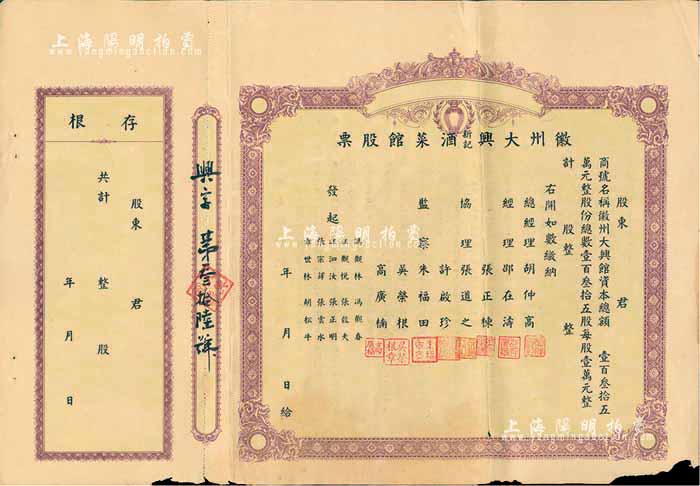 上海陽明拍賣
www.yangmingauction.com
徽州大興新記酒菜館股票
股東 君
商號名稱徽州大興館資本總額 壹百叁拾五
萬元整股份總數壹百叁拾五股每股壹萬元整
計 股整 整
右開如數繳納
總經理胡仲高
經理邵在濤
張正棟
協理張道之
許啟珍
監察朱福田
吳榮根
高廣楠
發起
馮觀林 馮觀春
觀悅 張啟大
泗汝 張正明
張宗 張雲水
章世林 胡松牛
年 月 日給
興字第叁拾陸號
存根
股東 君
共計 整股
年 月 日
上海陽明拍賣
www.yangmingauction.com
上海陽明拍賣
www.yangmingauction.com